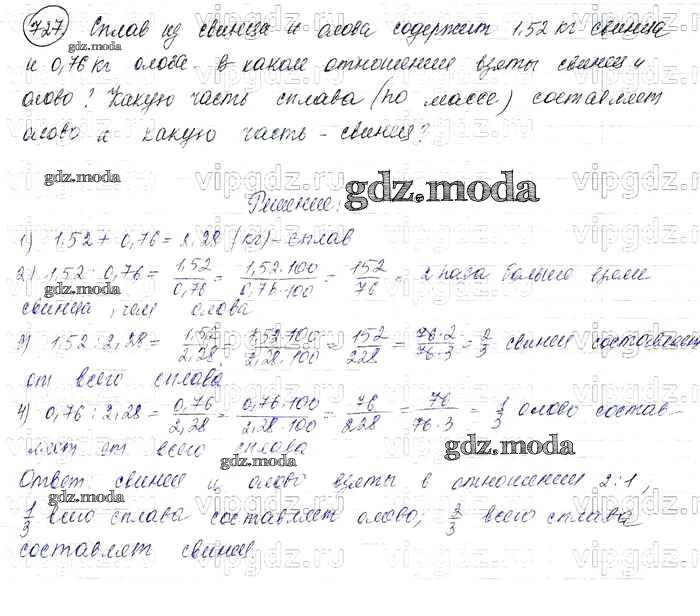 727) Сплав из свинца и олова содержит 1,52 кг свинца
и 0,76 кг олова. В каком отношении взяты свинец и
олово? Какую часть сплава (по массе) составляет
олово и какую часть - свинец?
Решение:
1) 1,52 + 0,76 = 2,28 (кг) - сплав
2) 1,52 : 0,76 = 1,52/0,76 = 1,52·100/0,76·100 = 152/76 = 2 раза больше взяли
свинца, чем олова
3) 1,52 : 2,28 = 1,52/2,28 = 1,52·100/2,28·100 = 152/228 = 76·2/76·3 = 2/3 свинец составляет
от всего сплава
4) 0,76 : 2,28 = 0,76/2,28 = 0,76·100/2,28·100 = 76/228 = 76/76·3 = 1/3 олово состав-
ляет от всего сплава
Ответ: свинец и олово взяты в отношении 2:1,
1/3 всего сплава составляет олово; 2/3 всего сплава
составляет свинец
gdz.moda
gdz.moda
gdz.moda
gdz.moda
gdz.moda
gdz.moda
gdz.moda
vipgdz.ru